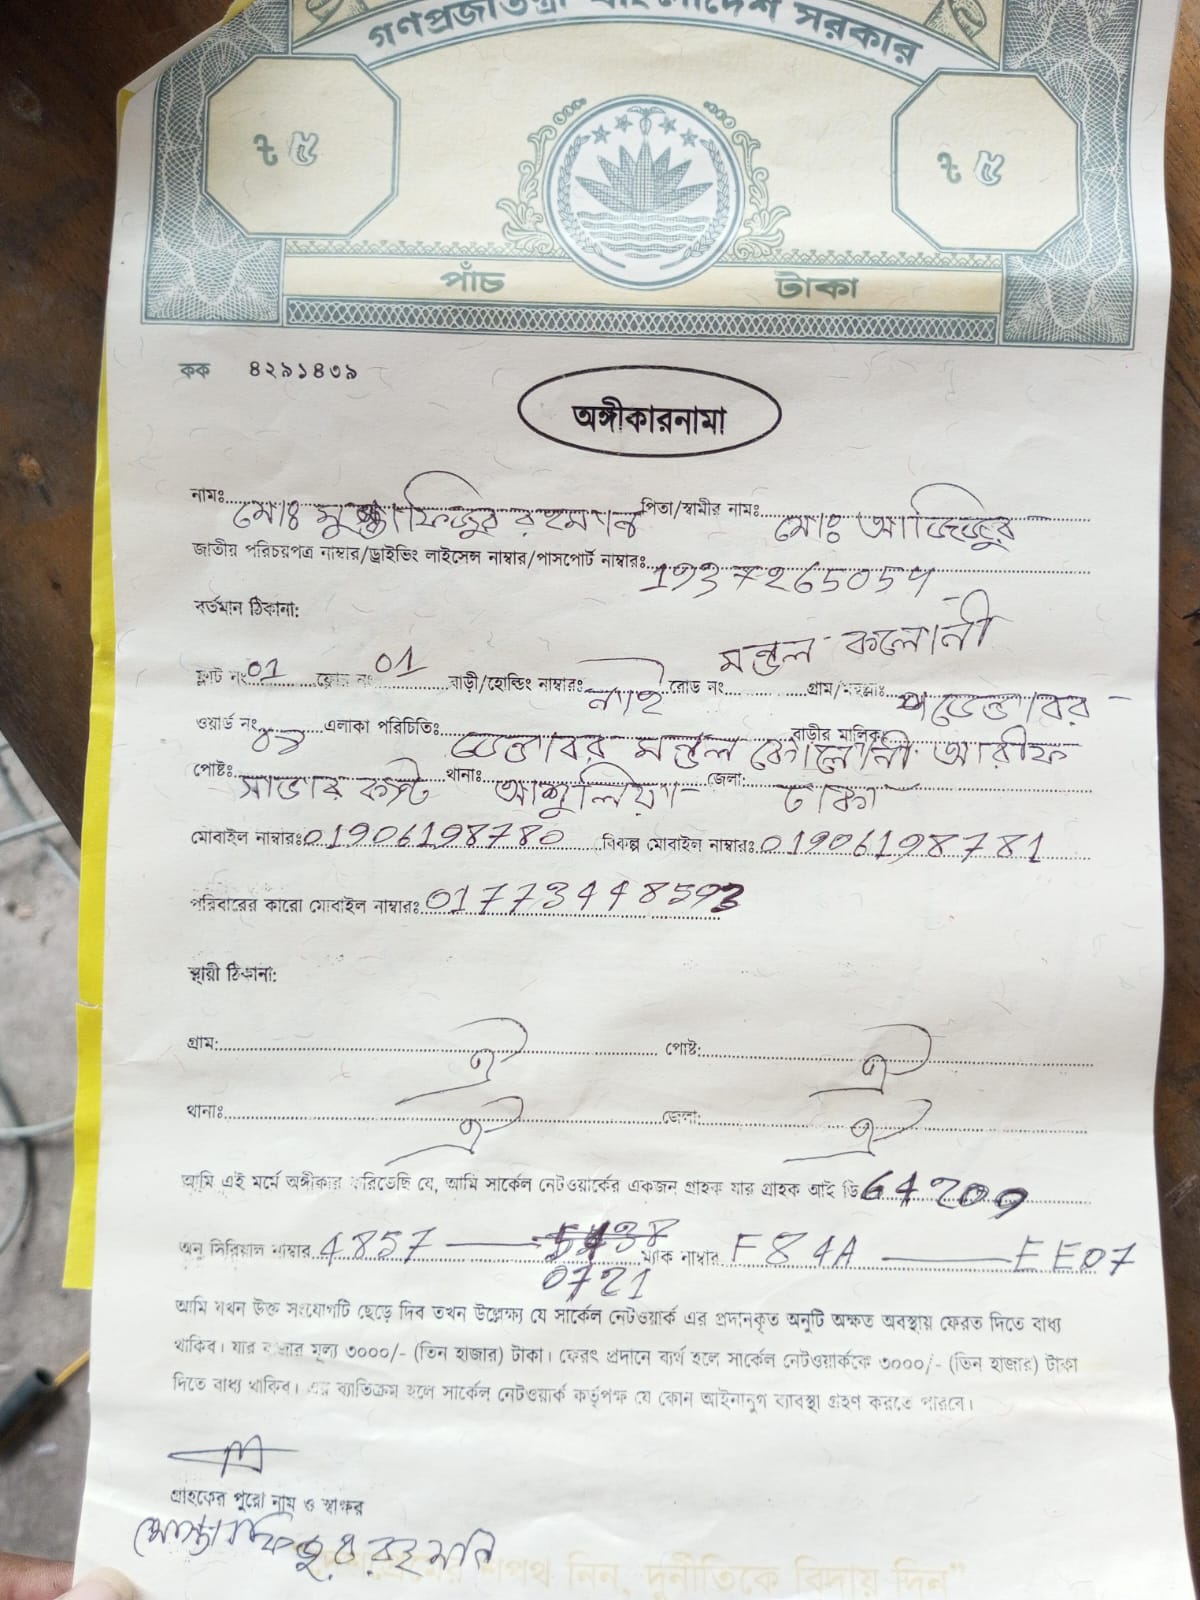 গণপ্রজাতন্ত্রী বাংলাদেশ সরকার
৳ ৫ ৳ ৫
পাঁচ টাকা
কক ৪২৯১৪৩৯
অঙ্গীকারনামা
নামঃ মোঃ মুস্তাফিজুর রহমান পিতা/স্বামীর নামঃ মোঃ আজিজুর
জাতীয় পরিচয়পত্র নাম্বার/ড্রাইভিং লাইসেন্স নাম্বার/পাসপোর্ট নাম্বারঃ
বর্তমান ঠিকানা:
মন্ডল কলোনী
ফ্লাট নং 01 ফ্লোর নং 01 বাড়ী/হোল্ডিং নাম্বারঃ নাই রোড নং গ্রাম/মহল্লাঃ
ওয়ার্ড নং এলাকা পরিচিতিঃ ডেন্ডাবর মন্ডল কোলোনী বাড়ীর মালিকঃ আরীফ
পোষ্টঃ সাভার থানাঃ আশুলিয়া জেলা: ঢাকা
মোবাইল নাম্বারঃ 01906198780 বিকল্প মোবাইল নাম্বারঃ 01906198781
পরিবারের কারো মোবাইল নাম্বারঃ
স্থায়ী ঠিকানা:
গ্রাম: ঐ পোষ্ট: ঐ
থানাঃ ঐ জেলা: ঐ
আমি এই মর্মে অঙ্গীকার করিতেছি যে, আমি সার্কেল নেটওয়ার্কের একজন গ্রাহক যার গ্রাহক আই ডি 64209
অনু সিরিয়াল নাম্বার 4857 — 0721 ম্যাক নাম্বার F84A — EE07
আমি যখন উক্ত সংযোগটি ছেড়ে দিব তখন উল্লেক্ষ্য যে সার্কেল নেটওয়ার্ক এর প্রদানকৃত অনুটি অক্ষত অবস্থায় ফেরত দিতে বাধ্য
থাকিব। যার বাজার মূল্য ৩০০০/- (তিন হাজার) টাকা। ফেরৎ প্রদানে ব্যর্থ হলে সার্কেল নেটওয়ার্ককে ৩০০০/- (তিন হাজার) টাকা
দিতে বাধ্য থাকিব। এর ব্যাতিক্রম হলে সার্কেল নেটওয়ার্ক কর্তৃপক্ষ যে কোন আইনানুগ ব্যাবস্থা গ্রহণ করতে পারবে।
গ্রাহকের পুরো নাম ও স্বাক্ষর
মোস্তাফিজুর রহমান
শপথ নিন, দুর্নীতিকে বিদায় দিন”